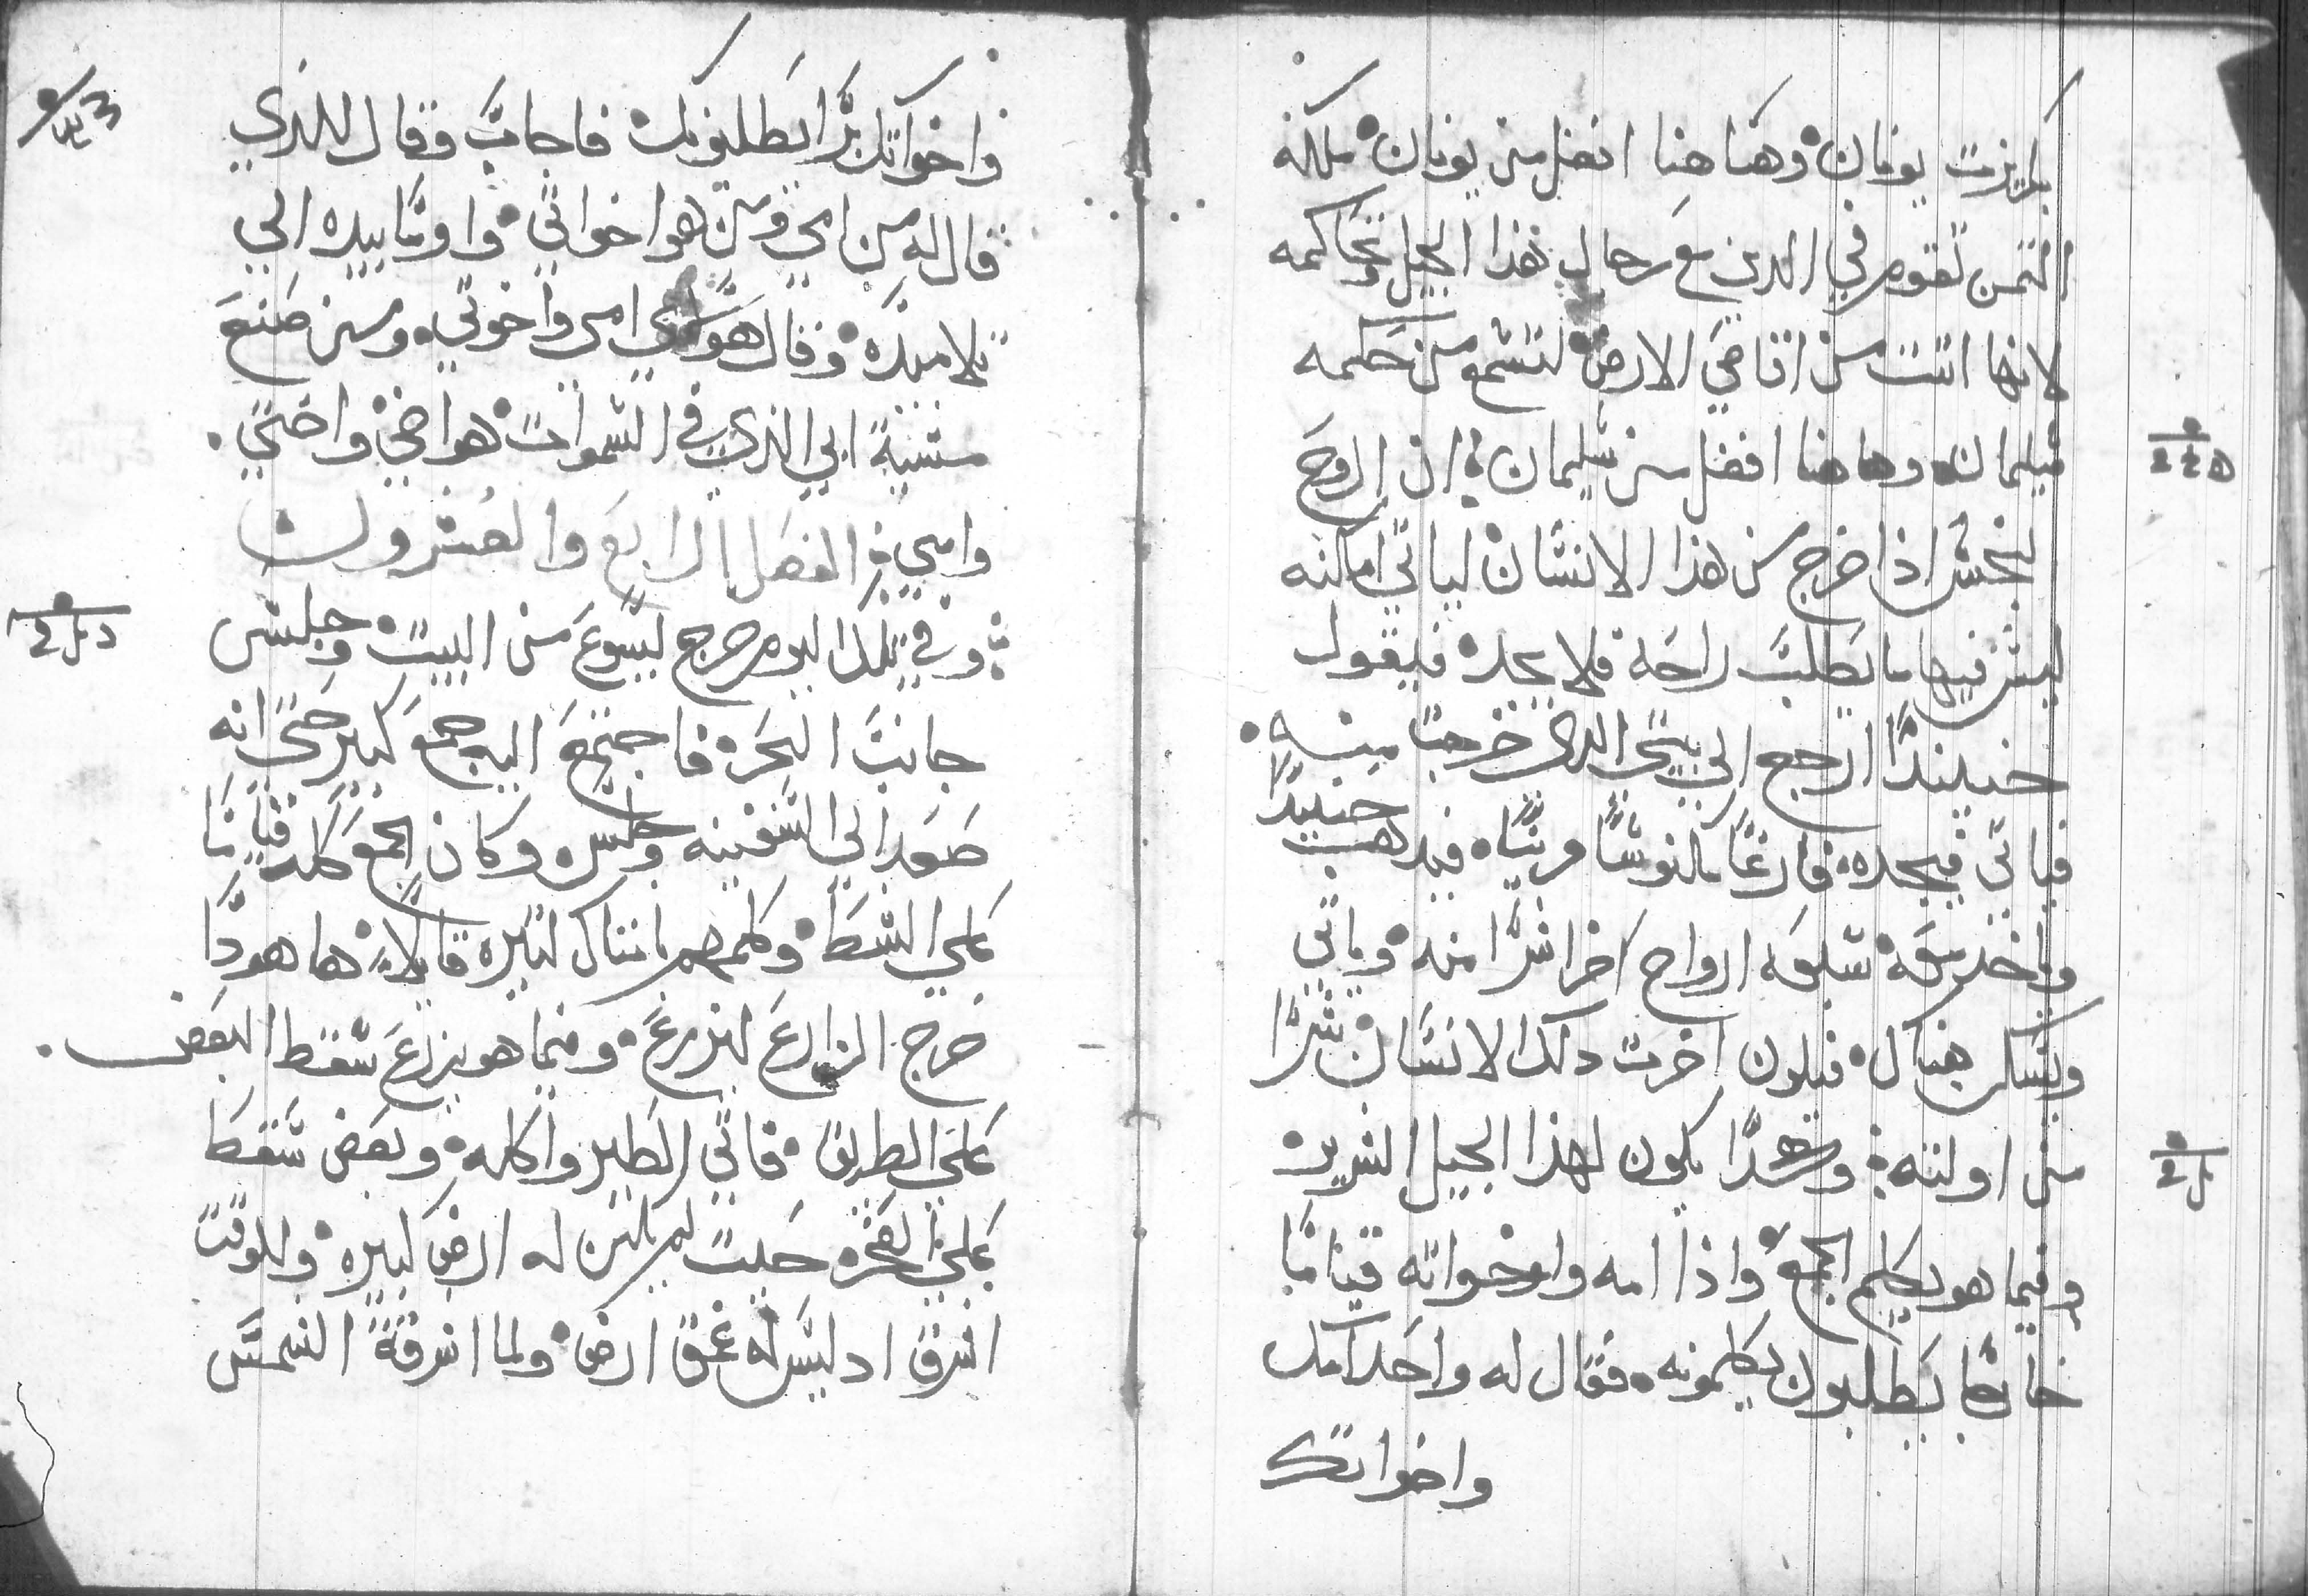 بكريزت يونان وهاهنا افضل من يونان ملكة
التيمن تقوم في الدين مع رجال هذا الجيل وتحاكمه
لانها اتت من اقاصي الارض لتسمع من حكمه
سليمان وهاهنا افضل من سليمان ان الروح
النجس اذا خرج من هذا الانسان لياتي امكنه
ليس فيها ما يطلب راحة فلا يجده فيقول
حينيدًا ارجع الي بيتي الدي خرجت منه
فياتي فيجده فارغًا مكنوسًا مزينًا فيدهب حينيدًا
وياخد معه سبعه ارواح اخر اشرا منه وياتي
ويسكن هناك فيكون اخرت دلك الانسان شرًا
من اولته وهكدا يكون لهذا الجيل الشرير
وفيما هو يكلم الجمع واذا امه واخواته قيامًا
خارجًا يطلبون يكلمونه فقال له واحد امك
واخواتك
واخواتك برًا يطلبونك فاجاب وقال للذي
قال له من امي ومن هو اخواتي واومًا بيده الي
تلاميده وقال هولاي امي واخوتي ومن صنع
مشية ابي الذي في السموات هو اخي واختي
وامي الفصل الرابع والعشرون
وفي تلك اليوم خرج يسوع من البيت وجلس
جانب البحره فاجتمع اليه جمع كبير حتي انه
صعد الي السفينه وجلس وكان الجمع كله قيامًا
علي الشط وكلمهم بامتال كتيره قايلاً ها هودا
خرج الزارع ليزرع وفيما هو يزرع سقط البعض
علي الطريق فاتي الطير واكله وبعض سقط
علي الصخره حيت لم يكن له ارض كبيره وللوقت
اشرق اد ليس له عمق ارض ولما اشرقة الشمس